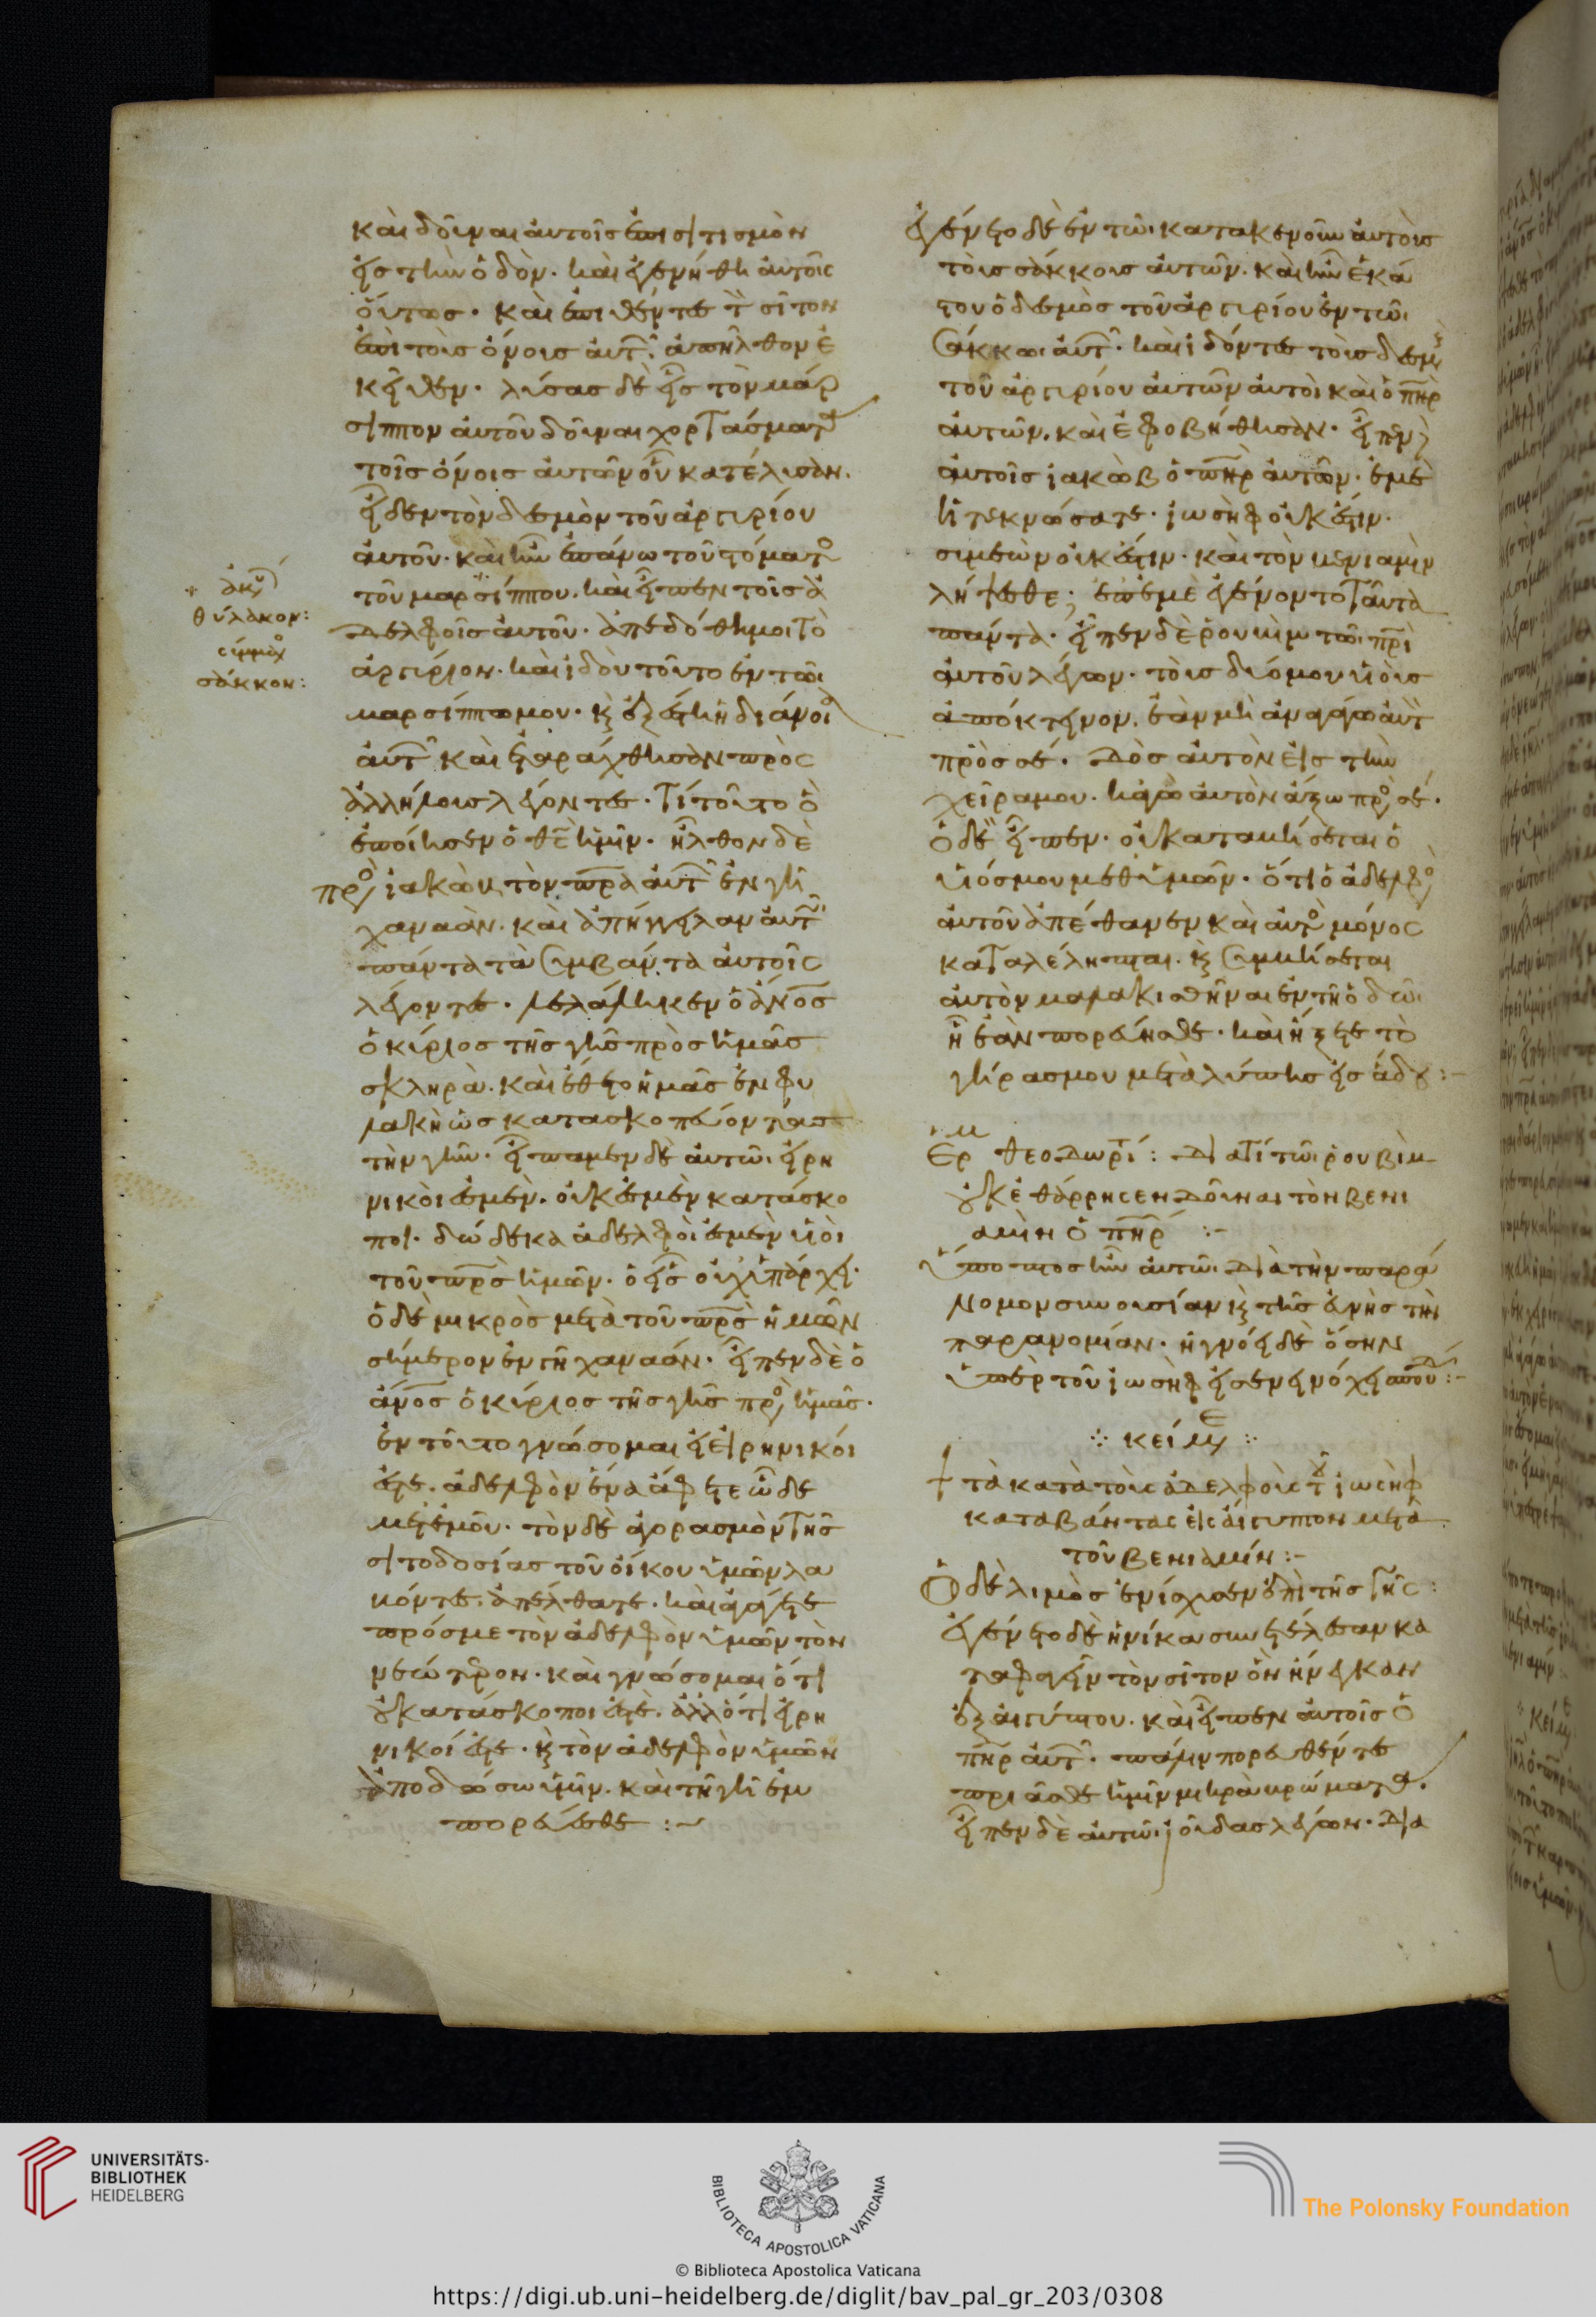 καὶ δοῦναι αὐτοῖς ἐπισιτισμὸν
εἰς τὴν ὁδὸν. καὶ ἐγενήθη αὐτοῖς
οὕτως. καὶ ἐπιθέντες τ̀ σῖτον
ἐπὶ τοὺς ὄνους αὐτ̑. ἀπῆλθον ἐ
κεῖθεν. λύσας δὲ εἷς τὸν μάρ
σιππον αὐτοῦ δοῦναι χορτάσματα
τοῖς ὄνοις αὐτῶν οὗ κατέλυσαν.
εἶδεν τὸν δεσμὸν τοῦ ἀργυρίου
αὐτοῦ. καὶ ἦν ἐπάνω τοῦ στόματο
τοῦ μαρσίππου. καὶ εἶπεν τοῖς ἀ
δελφοῖς αὐτοῦ. ἀπεδόθη μοι τὸ
ἀργύριον. καὶ ἰδοὺ τοῦτο ἐν τῶι
μαρσίππω μου. κ̀ ἐξέστη ἡ διάνοι
αὐτ̑ καὶ ἐταράχθησαν πρὸς
ἀλλήλους λέγοντες. τί τοῦτο ὃ
ἐποίησεν ὁ θ̅ς̅ ἡμῖν. ἦλθον δὲ
πρ̀ο ἰακὼβ τὸν π̅ρ̅α̅ αὐτ̑ ἐν γῆ
χαναὰν. καὶ ἀπήγγειλαν αὐτ̑
πάντα τὰ συμβάντα αὐτοῖς
λέγοντες. λελάληκεν ὁ ἄ̅ν̅ο̅ς̅
ὁ κύριος τῆς γῆς πρὸς ἡμᾶς
σκληρὰ. καὶ ἔθετο ἡμᾶς ἐν φυ
λακῆ ὡς κατασκοπεύοντας
τὴν γῆν. εἴπαμεν δὲ αὐτῶι. εἰρη
νικοί ἐσμεν. οὐκ ἐσμὲν κατάσκο
ποι. δώδεκα ἀδελφοὶ ἐσμὲν υἱοὶ
τοῦ π̅ρ̅ς̅ ἡμῶν. ὁ εἷς οὐχ ὑπάρχει.
ὁ δὲ μικρὸς μετὰ τοῦ π̅ρ̅ς̅ ἡμῶν
σήμερον ἐν γῆ χαναάν. εἶπεν δὲ ὁ
ἄ̅ν̅ο̅ς̅ ὁ κύριος τῆς γῆς πρ̀ο ἡμᾶς.
ἐν τούτο γνώσομαι εἰ εἰρηνικοί
ἐστε. ἀδελφὸν ἕνα ἄφετε ὧδε
μετ ἐμοῦ. τὸν δὲ ἀγορασμὸν τῆς
σιτοδοσίας τοῦ οἴκου ὑμῶν λα
βόντες. ἀπέλθατε. καὶ ἀγάγετε
πρόσμε τὸν ἀδελφὸν ὑμῶν τὸν
νεώτερον. καὶ γνώσομαι ὅτι
οὐ κατάσκοποι ἐστὲ. ἀλλ ὅτι εἰρη
νικοί ἐστε. κ̀ τὸν ἀδελφὸν ὑμῶν
ἀποδώσω ὑμῖν. καὶ τῆ γῆ ἐμ
πορεύεσθε :~
ἀκυ
θύλακον:
σύμμαχο
σάκκον:
ἐγένετο δὲ ἐν τῶι κατακενοῦν αὐτοὺς
τοὺς σάκκους αὐτῶν. καὶ ἦν ἑκά
στου ὁ δεσμὸς τοῦ ἀργυρίου ἐν τῶι
σάκκωι αὐτ̑. καὶ ἰδόντες τοὺς δεσμ
τοῦ ἀργυρίου αὐτῶν αὐτοὶ καὶ ὁ π̅η̅ρ̅
αὐτῶν. καὶ ἐφοβήθησαν. εἶπεν δ
αὐτοῖς ἰακὼβ ὁ π̅η̅ρ̅ αὐτῶν. ἐμὲ
ἠτεκνώσατε. ἰωσὴφ οὐκ ἔστιν.
συμεὼν οὐκ ἔστιν. καὶ τὸν βενιαμὶν
λήψεσθε; ἐπ ἐμὲ ἐγένοντο ταῦτα
πάντα. εἶπεν δὲ ῥουβὶμ τῶι π̅ρ̅ι̅
αὐτοῦ λέγων. τοὺς δύο μου υἱοὺς
ἀπόκτεινον. ἐὰν μὴ ἀγάγω αὐτ
πρὸς σέ. δὸς αὐτὸν εἰς τὴν
χεῖρα μου. κἀγὼ αὐτὸν ἄξω πρ̀ο σέ.
ὁ δὲ εἶπεν. οὐ καταβήσεται ὁ
υἱός μου μεθ ὑμῶν. ὅτι ὁ ἀδελφὸ
αὐτοῦ ἀπέθανεν καὶ αὐτο μόνος
καταλέλειπται. κ̀ συμβήσεται
αὐτὸν μαλακισθῆναι ἐν τῆ ὁδῶι
ἧ ἐὰν πορεύησθε. καὶ ἥξετε τὸ
γῆρασμου μετὰ λύπης εἰς ἅδου :~
Ερ θεοδωρί : Διατί τῶι ῥουβὶμ
οὐκ ἐθάρρησεν δοῦναι τὸν βενι
αμὶν ὁ π̅η̅ρ̅ :~
ὕποπτος ἦν αὐτῶι διὰ τὴν παρά
νομον συνουσίαν κ̀ τῆς εὐνῆς τὴν
παρανομίαν. ἠγνόει δὲ ὅσην
ὑπὲρ τοῦ ἰωσὴφ εἰσενηνόχει σπουδ :~
∴ κείμε ∴
τὰ κατὰ τοὺς ἀδελφοὺς τ̑ ἰωσὴφ
καταβάντας εἰς αἴγυπτον μετὰ
τοῦ βενιαμίν :~
Ὁ δὲ λιμὸς ἐνίσχυσεν ἐπὶ τῆς γῆς :
ἐγένετο δὲ ἡνίκα συνετέλεσαν κα
ταφαγεῖν τὸν σῖτον ὃν ἤνεγκαν
ἐξ αἰγύπτου. καὶ εἶπεν αὐτοῖς ὁ
π̅η̅ρ̅ αὐτ̑. πάλιν πορευθέντες
πρίασθε ἡμῖν μικρὰ βρώματα.
εἶπεν δὲ αὐτῶι ἰούδας λέγων. Δια
UNIVERSITÄTS-
BIBLIOTHEK
HEIDELBERG
BIBLIOTECA APOSTOLICA VATICANA
The Polonsky Foundation
© Biblioteca Apostolica Vaticana
https://digi.ub.uni-heidelberg.de/diglit/bav_pal_gr_203/0308